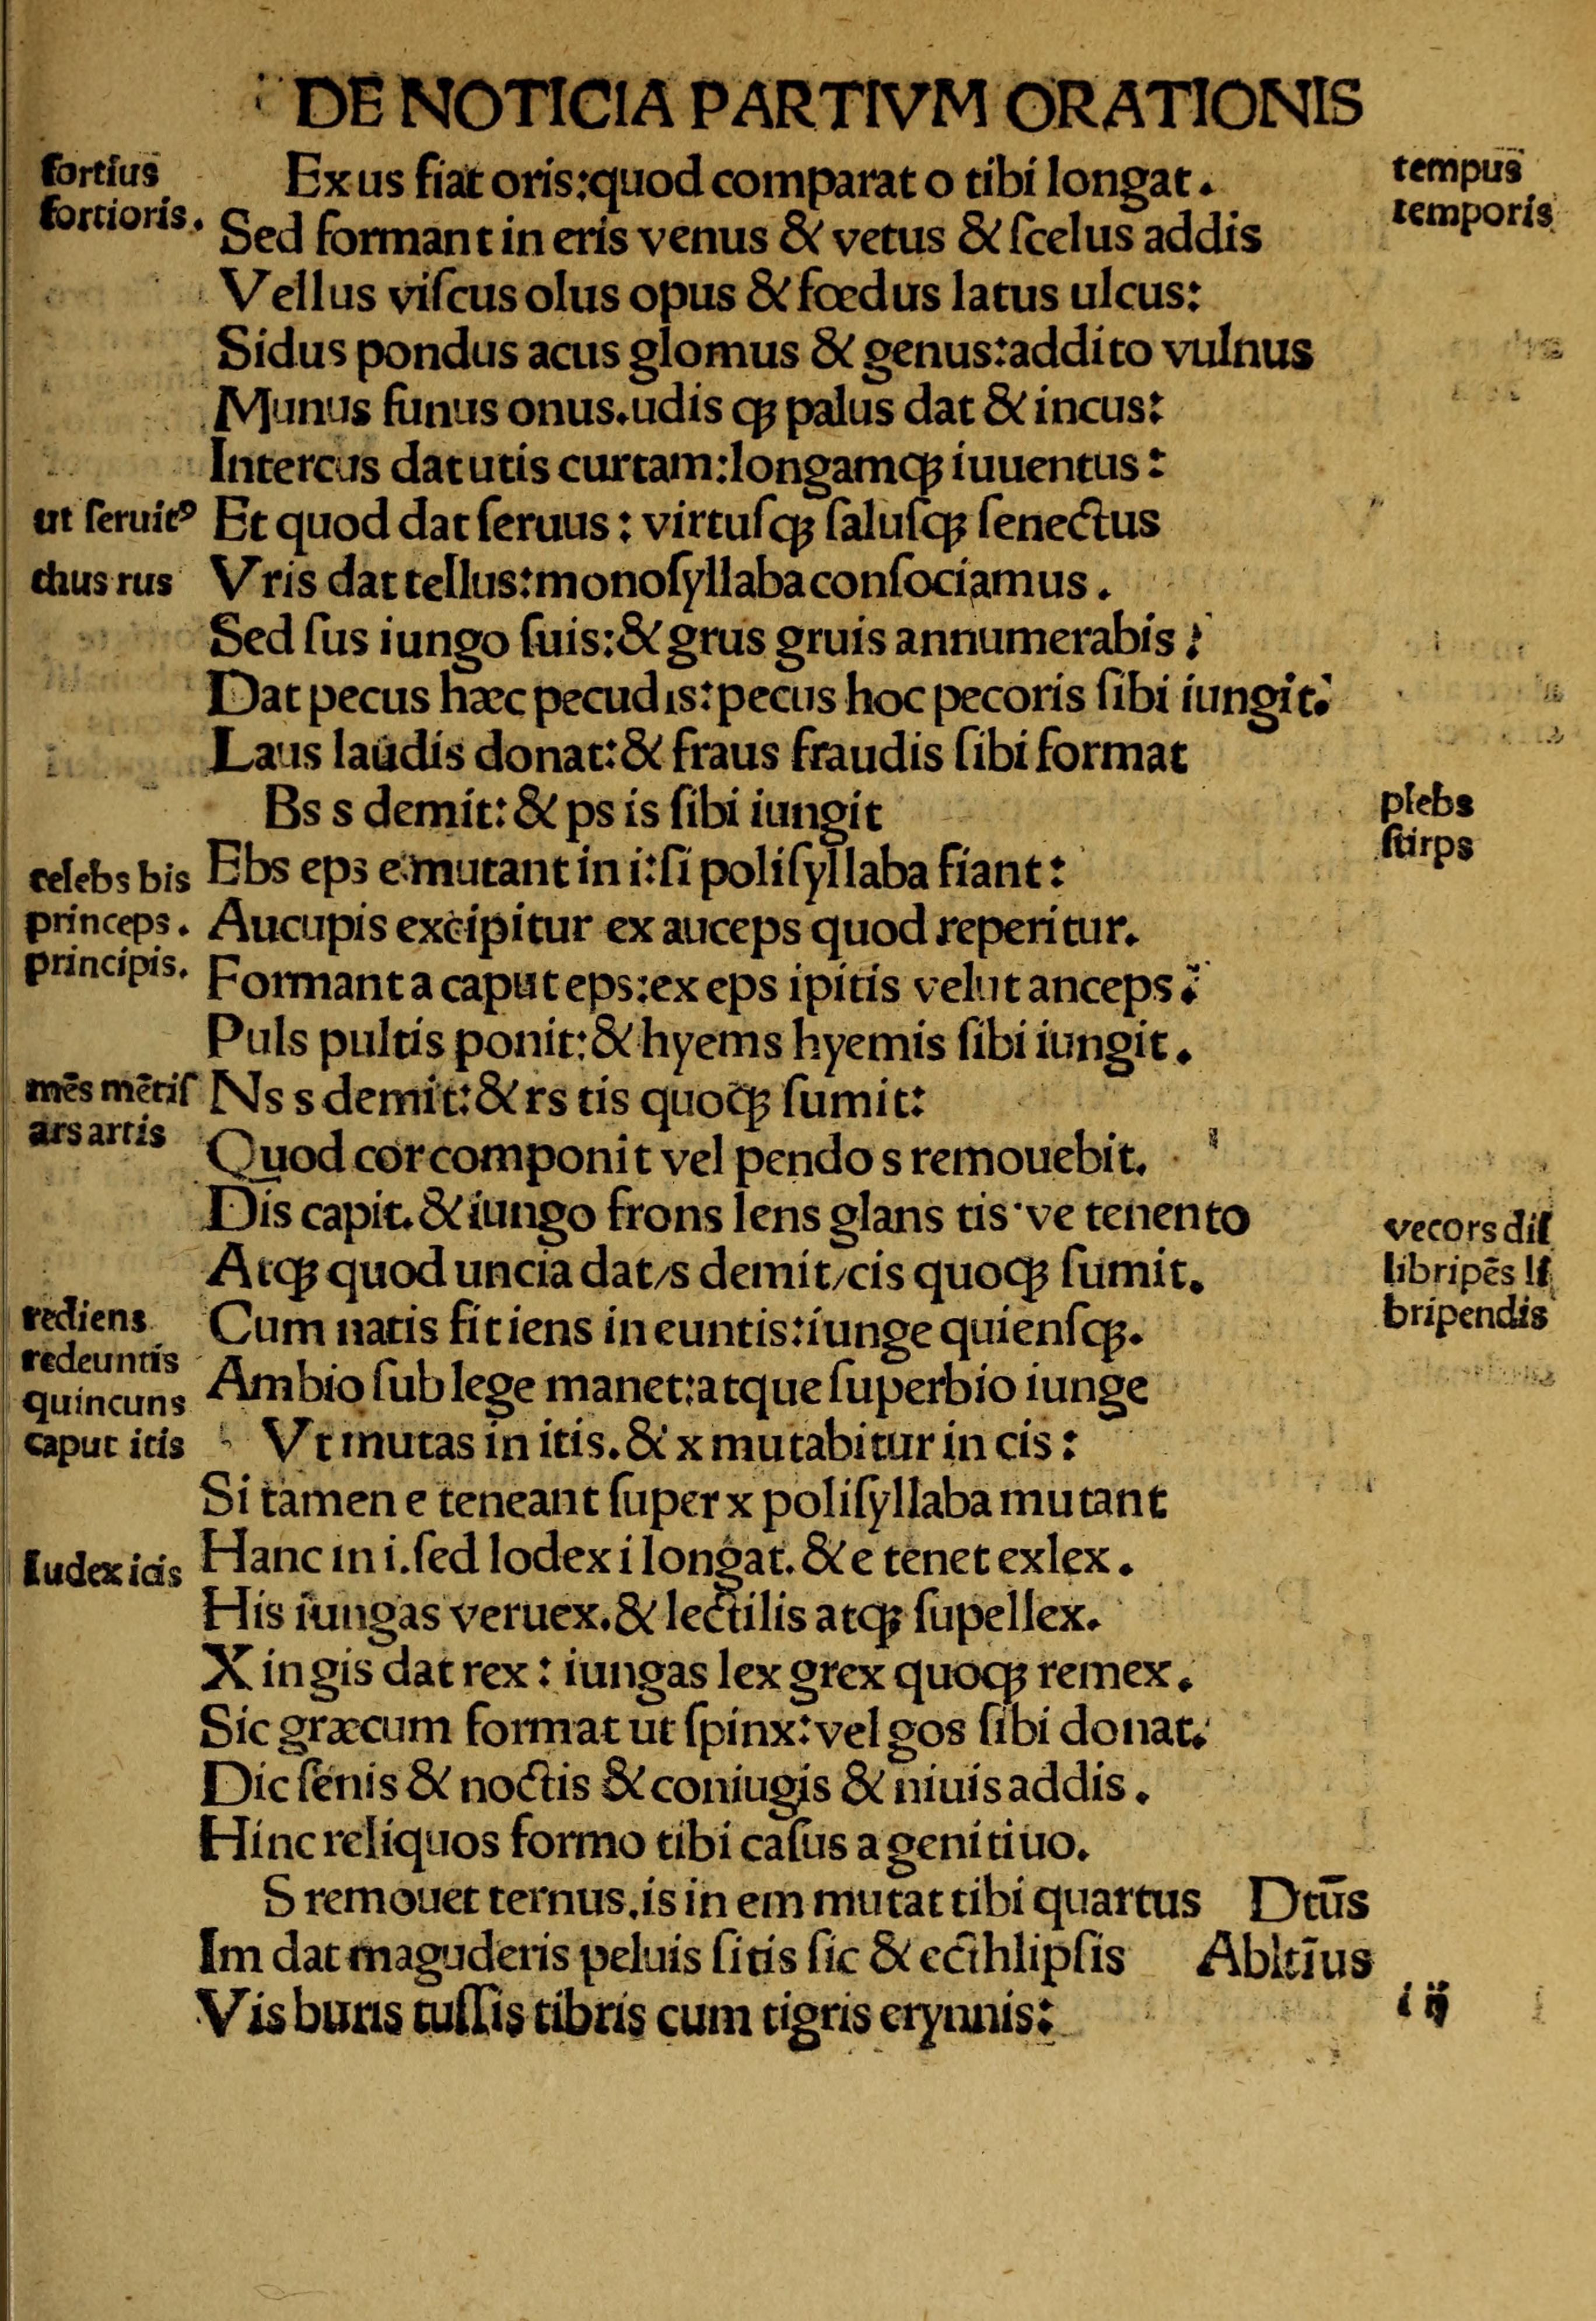 DE NOTICIA PARTIVM ORATIONIS
fortius
fortioris.
Ex us fiat oris:quod comparat o tibi longat.
tempus
temporis
Sed formant in eris venus & vetus & ſcelus addis
Vellus viſcus olus opus & fœdus latus ulcus:
Sidus pondus acus glomus & genus:addito vulnus
Munus funus onus.udis qꝫ palus dat & incus:
Intercus dat utis curtam:longamqꝫ iuuentus:
ut ſeruitꝰ
Et quod dat ſeruus: virtuſqꝫ ſaluſqꝫ ſenectus
thus rus
Vris dat tellus:monoſyllaba conſociamus.
Sed ſus iungo ſuis:& grus gruis annumerabis:
Dat pecus hæc pecudis:pecus hoc pecoris ſibi iungit.
Laus laudis donat:& fraus fraudis ſibi format
Bs s demit:& ps is ſibi iungit
plebs
ſtirps
celebs bis
Ebs eps e mutant in i:ſi poliſyllaba fiant:
princeps.
principis.
Aucupis excipitur ex auceps quod reperitur.
Formant a caput eps:ex eps ipitis velut anceps:
Puls pultis ponit:& hyems hyemis ſibi iungit.
mēs mētiſ
ars artis
Ns s demit:& rs tis quoqꝫ ſumit:
Quod cor componit vel pendo s remouebit.
Dis capit.& iungo frons lens glans tis ve tenento
vecors diſ
libripēs li
bripendis
Atqꝫ quod uncia dat/s demit/cis quoqꝫ ſumit.
rediens
redeuntis
Cum natis fit iens in euntis:iunge quienſqꝫ.
quincuns
Ambio ſub lege manet:atque ſuperbio iunge
caput itis
Vt mutas in itis.& x mutabitur in cis:
Si tamen e teneant ſuper x poliſyllaba mutant
Iudex icis
Hanc in i.ſed lodex i longat.& e tenet exlex.
His iungas veruex.& lectilis atqꝫ ſupellex.
X in gis dat rex: iungas lex grex quoqꝫ remex.
Sic græcum format ut ſpinx:vel gos ſibi donat.
Dic ſenis & noctis & coniugis & niuis addis.
Hinc reliquos formo tibi caſus a genitiuo.
S remouet ternus.is in em mutat tibi quartus Dtūs
Im dat maguderis peluis ſitis ſic & ecthlipſis Abltīus
Vis buris tuſſis tibris cum tigris erynnis:
i ij